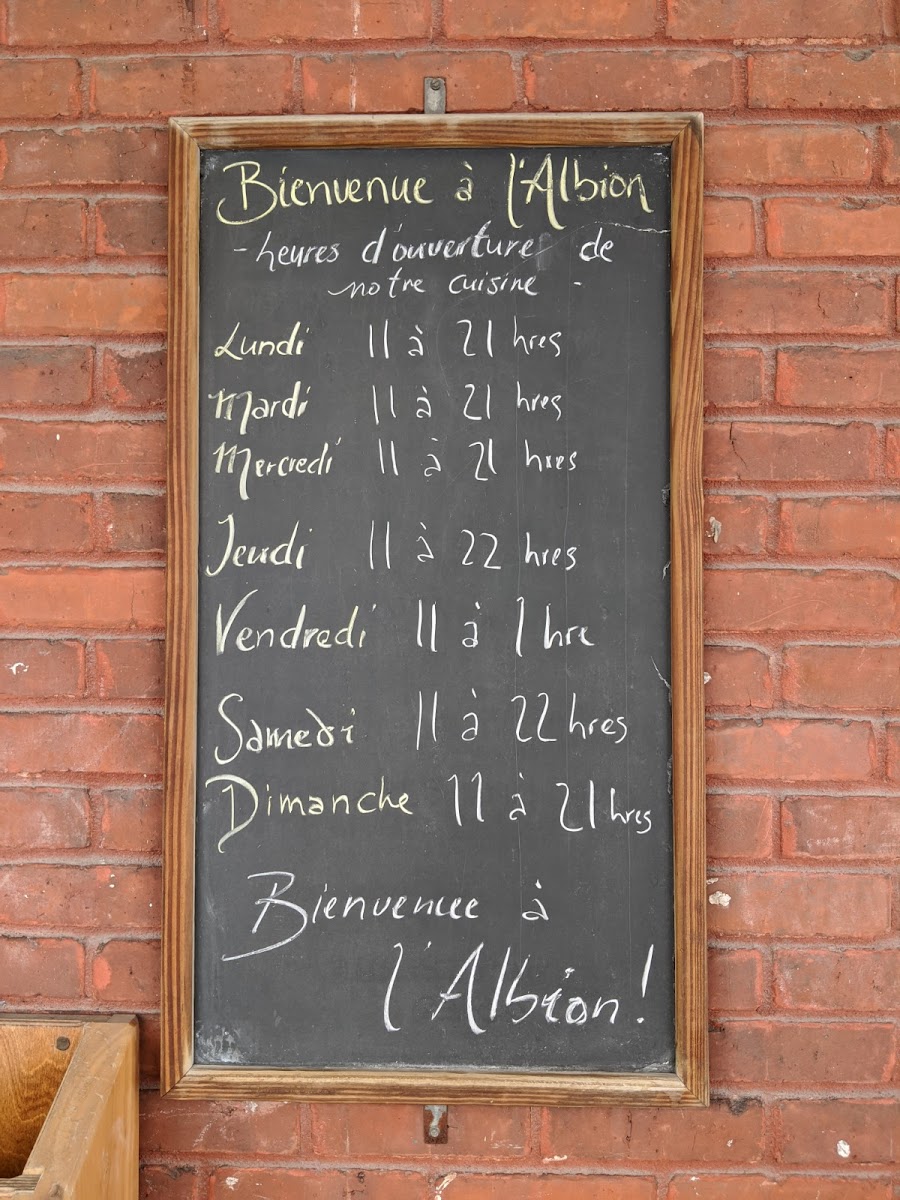 Bienvenue à l'Albion
- heures d'ouverture de
notre cuisine -
Lundi 11 à 21 hres
Mardi 11 à 21 hres
Mercredi 11 à 21 hres
Jeudi 11 à 22 hres
Vendredi 11 à 1 hre
Samedi 11 à 22 hres
Dimanche 11 à 21 hres
Bienvenue à
l'Albion!